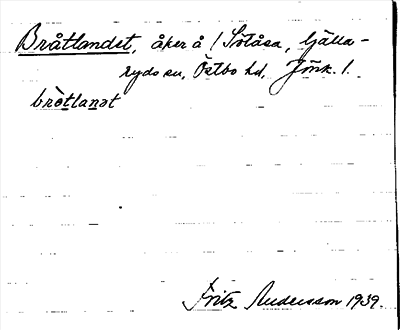 Bråtlandet, åker å /Sötåsa, Kjälla-
ryds sn, Östbo hd, Jönk. l.
brò̱tlanət
Fritz Andersson 1939.